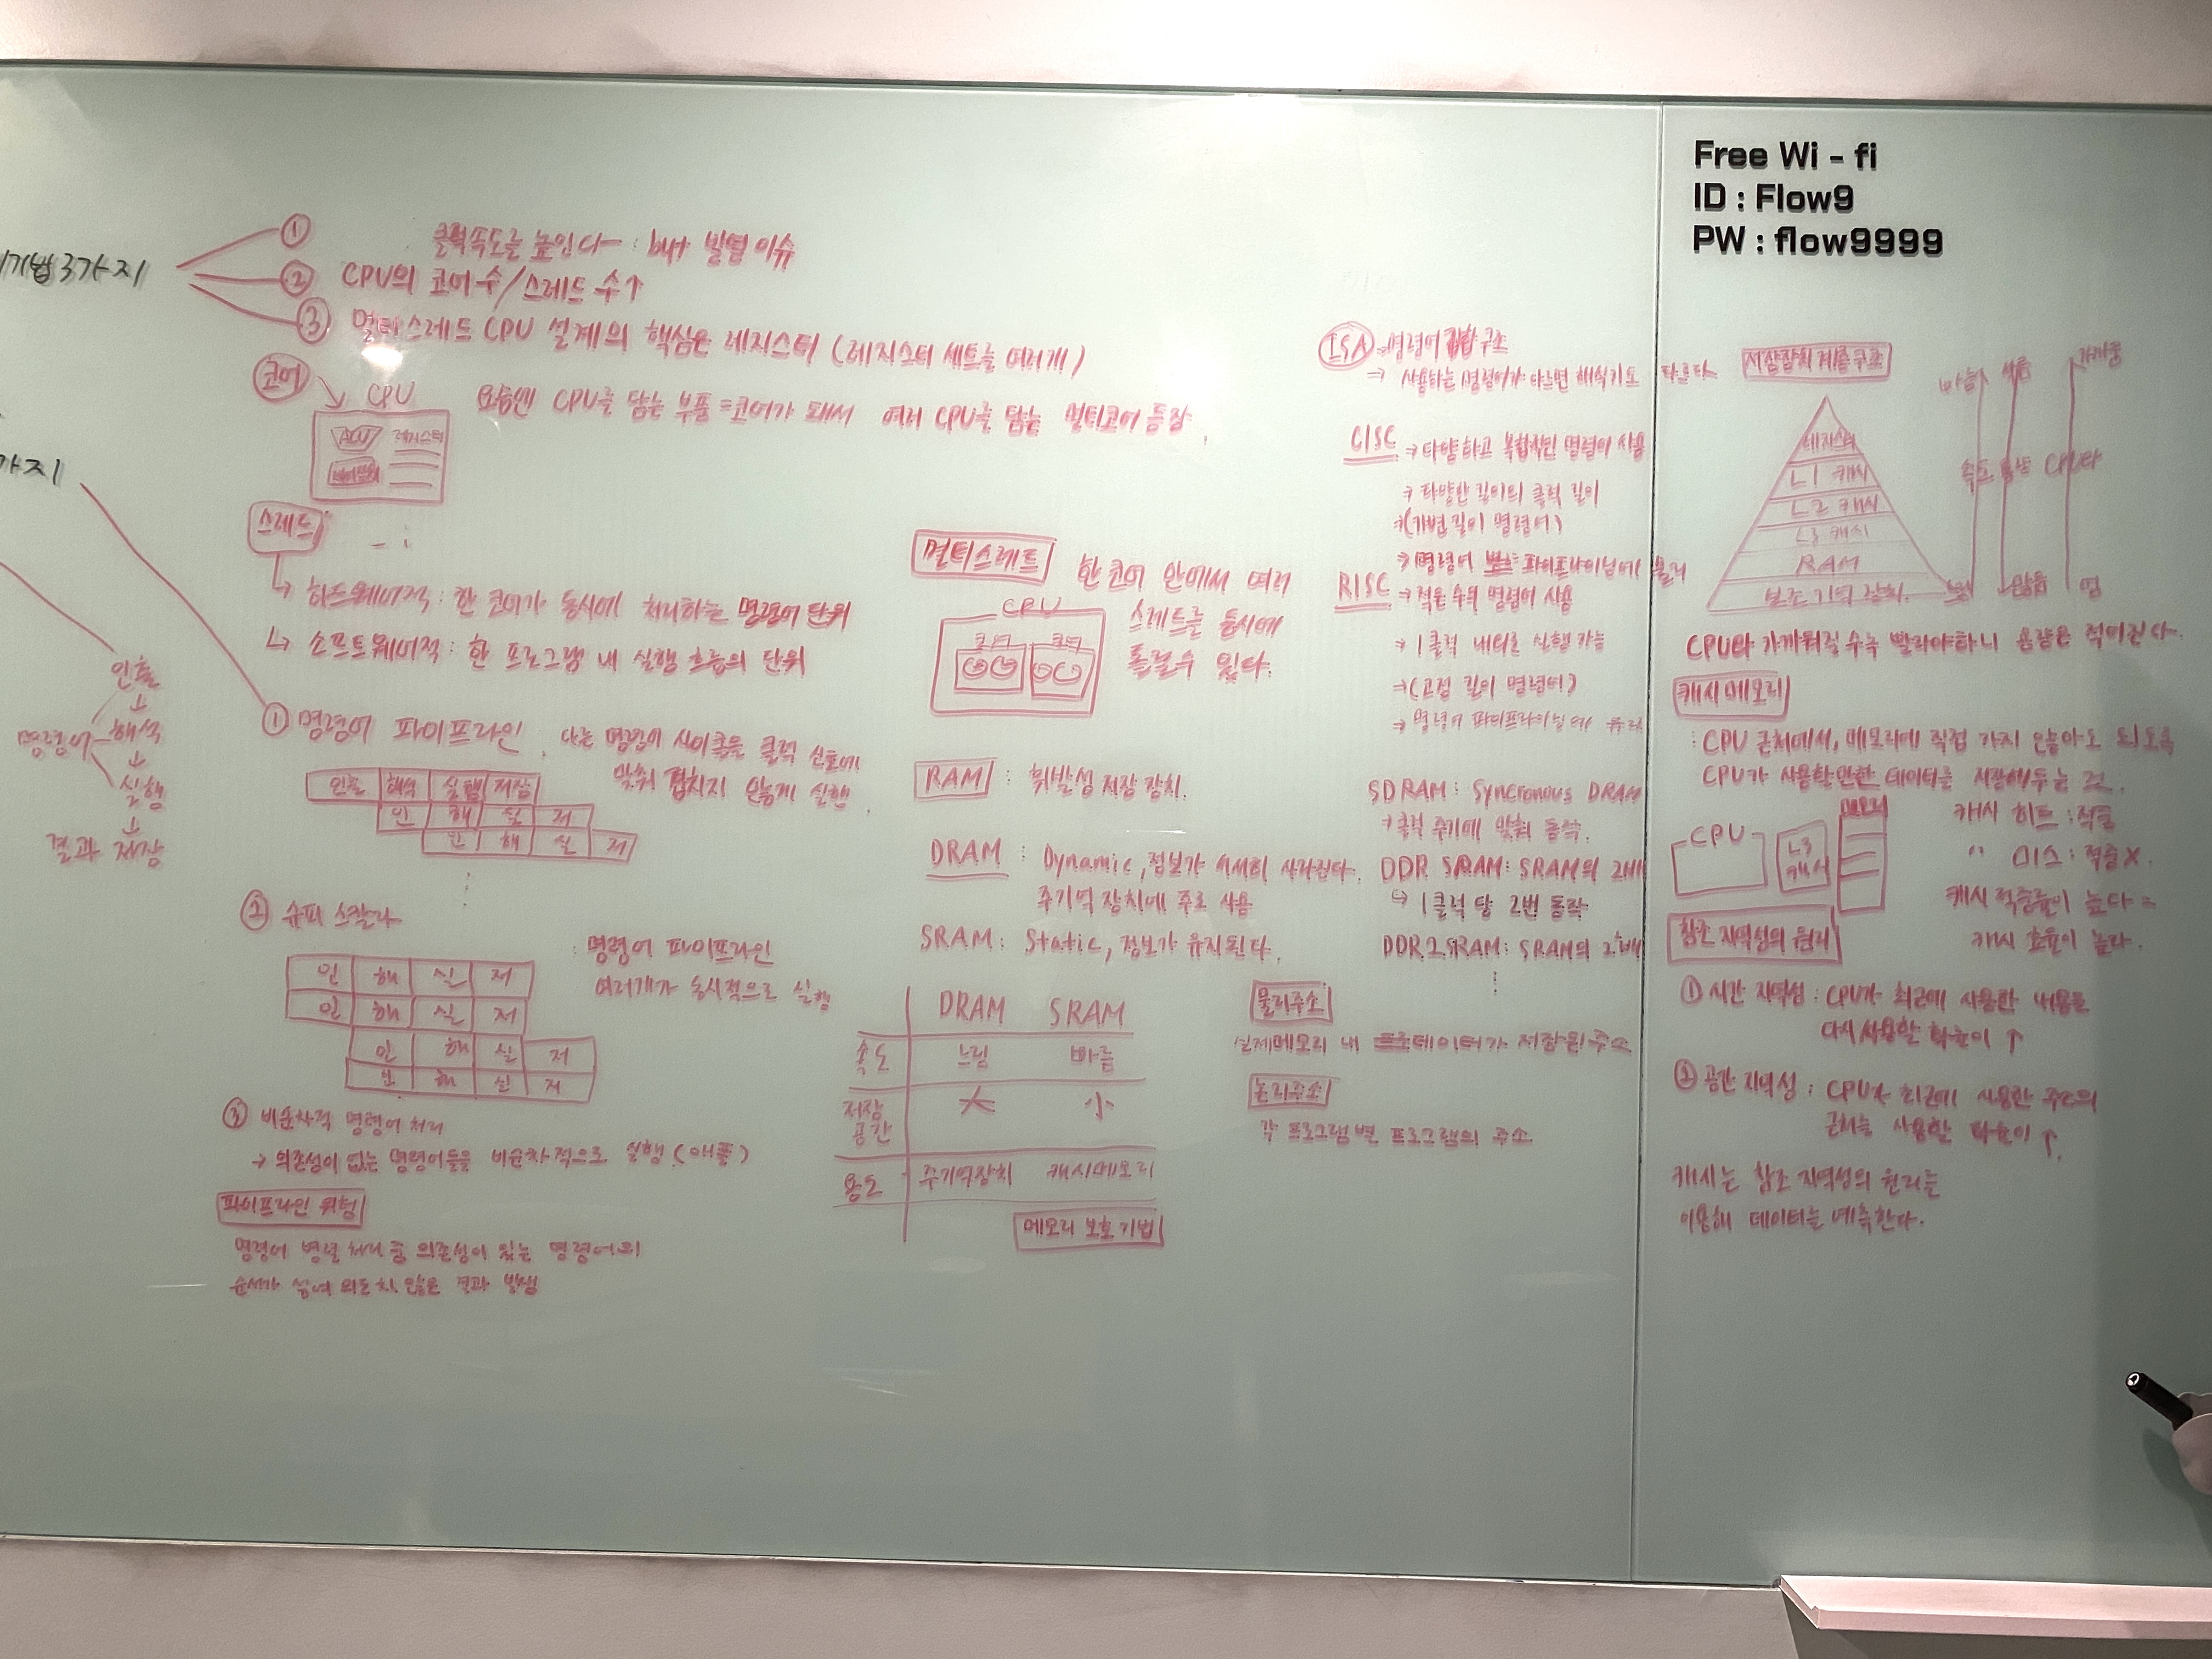 기법 3가지
①
클럭속도를 높인다 : but 발열 이슈
② CPU의 코어 수 / 스레드 수↑
③ 멀티스레드 CPU 설계의 핵심은 레지스터 (레지스터 세트를 여러개)
코어
CPU
ALU 레지스터
제어장치
요즘엔 CPU를 담는 부품 = 코어가 돼서 여러 CPU를 담는 멀티코어 등장.
가지
스레드
↳ 하드웨어적 : 한 코어가 동시에 처리하는 명령어 단위
↳ 소프트웨어적 : 한 프로그램 내 실행 흐름의 단위
명령어
인출
↓
해석
↓
실행
↓
결과 저장
① 명령어 파이프라인
: 나눈 명령어 사이클을 클럭 신호에
맞춰 겹치지 않게 실행
인출 해석 실행 저장
인 해 실 저
인 해 실 저
② 슈퍼 스칼라
: 명령어 파이프라인
여러개가 동시적으로 실행
인 해 실 저
인 해 실 저
인 해 실 저
인 해 실 저
③ 비순차적 명령어 처리
→ 의존성이 없는 명령어들을 비순차적으로 실행 (애플)
파이프라인 위험
명령어 병렬 처리 중 의존성이 있는 명령어의
순서가 섞여 의도치 않은 결과 발생
멀티스레드 한 코어 안에서 여러
스레드를 동시에
돌릴 수 있다.
CPU
코어 코어
RAM : 휘발성 저장 장치.
DRAM : Dynamic, 정보가 서서히 사라진다.
주기억 장치에 주로 사용
SRAM : Static, 정보가 유지된다.
DRAM SRAM
속도 느림 빠름
저장 공간 大 小
용도 주기억장치 캐시메모리
메모리 보호 기법
ISA = 명령어 집합 구조
⇒ 사용하는 명령어가 다르면 해석기도 다르다
CISC → 다양하고 복잡한 명령어 사용
→ 다양한 길이의 클럭 길이
→ (가변 길이 명령어)
→ 명령어 파이프라이닝에 불리
RISC → 적은 수의 명령어 사용
→ 1클럭 내외로 실행 가능
→ (고정 길이 명령어)
→ 명령어 파이프라이닝에 유리
SDRAM : Syncronous DRAM
→ 클럭 주기에 맞춰 동작.
DDR SRAM : SRAM의 2배
↳ 1클럭 당 2번 동작
DDR2 SRAM : SRAM의 2²배
물리주소
실제메모리 내 데이터가 저장된 주소
논리주소
각 프로그램별 프로그램의 주소
Free Wi - fi
ID : Flow9
PW : flow9999
저장장치 계층 구조
레지스터
L1 캐시
L2 캐시
L3 캐시
RAM
보조 기억 장치
빠름 적음 가까움
속도 용량 CPU와
느림 많음 멈
CPU와 가까워질 수록 빨라야하니 용량은 적어진다.
캐시 메모리
: CPU 근처에서, 메모리에 직접 가지 않아도 되도록
CPU가 사용할만한 데이터를 저장해두는 것.
CPU
L3 캐시
메모리
캐시 히트 : 적중
〃 미스 : 적중X.
캐시 적중률이 높다 =
캐시 효율이 높다.
참조 지역성의 원리
① 시간 지역성 : CPU가 최근에 사용한 내용을
다시 사용할 확률이 ↑
② 공간 지역성 : CPU가 최근에 사용한 주소의
근처를 사용할 확률이 ↑.
캐시는 참조 지역성의 원리를
이용해 데이터를 예측한다.